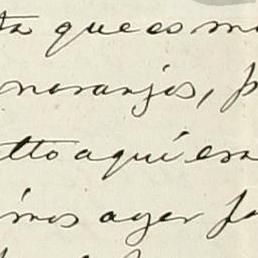 ta que es m
naranjos, p
tto aquí en
imos ayer pa